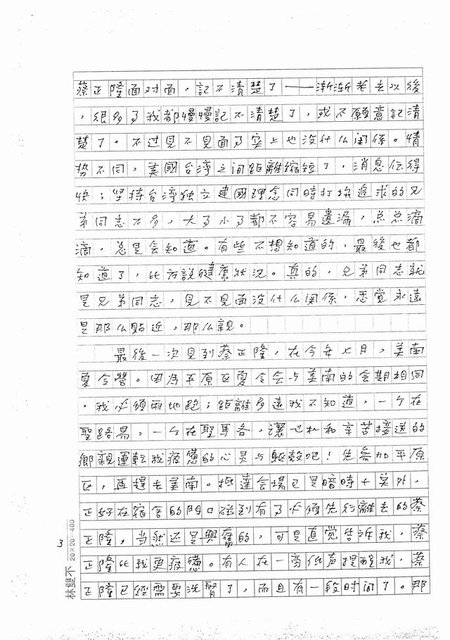 蔡正隆面对面，記不清楚了——渐渐老去以後
，很多事我都慢慢記不清楚了，或不願意記清
楚了。不过見不見面事实上也没什么関係。情
势不同，美國台湾之间距離縮短了，消息伝得
快；堅持台湾独立建國理念同時打拚追求的兄
弟同志不多，大事小事都不容易遺漏，点点滴
滴，总是会知道。有些不想知道的，最後也都
知道了，比方說健康狀況。真的，兄弟同志就
是兄弟同志，見不見面没什么関係，感覚永遠
是那么貼近，那么親。
最後一次見到蔡正隆，在今年七月，美南
夏令营。因为平原区夏令会与美南的会期相同
，我必須两地跑；距離多遠我不知道，一个在
聖路易，一个在聖馬吞，讓
鄉親連載我疲憊的心是与軀殼吧！先参加平原
区，再趕去美南。抵達会場已是暗時十点外，
正好在宿舍的門口碰到有事必須先行離去的蔡
正隆，当然还是興奮的，可是直覚告訴我，蔡
正隆比我更疲憊。有人在一旁低声提醒我，蔡
正隆已經需要洗腎了，而且有一段时间了。那
3
20×20=400
林雙不